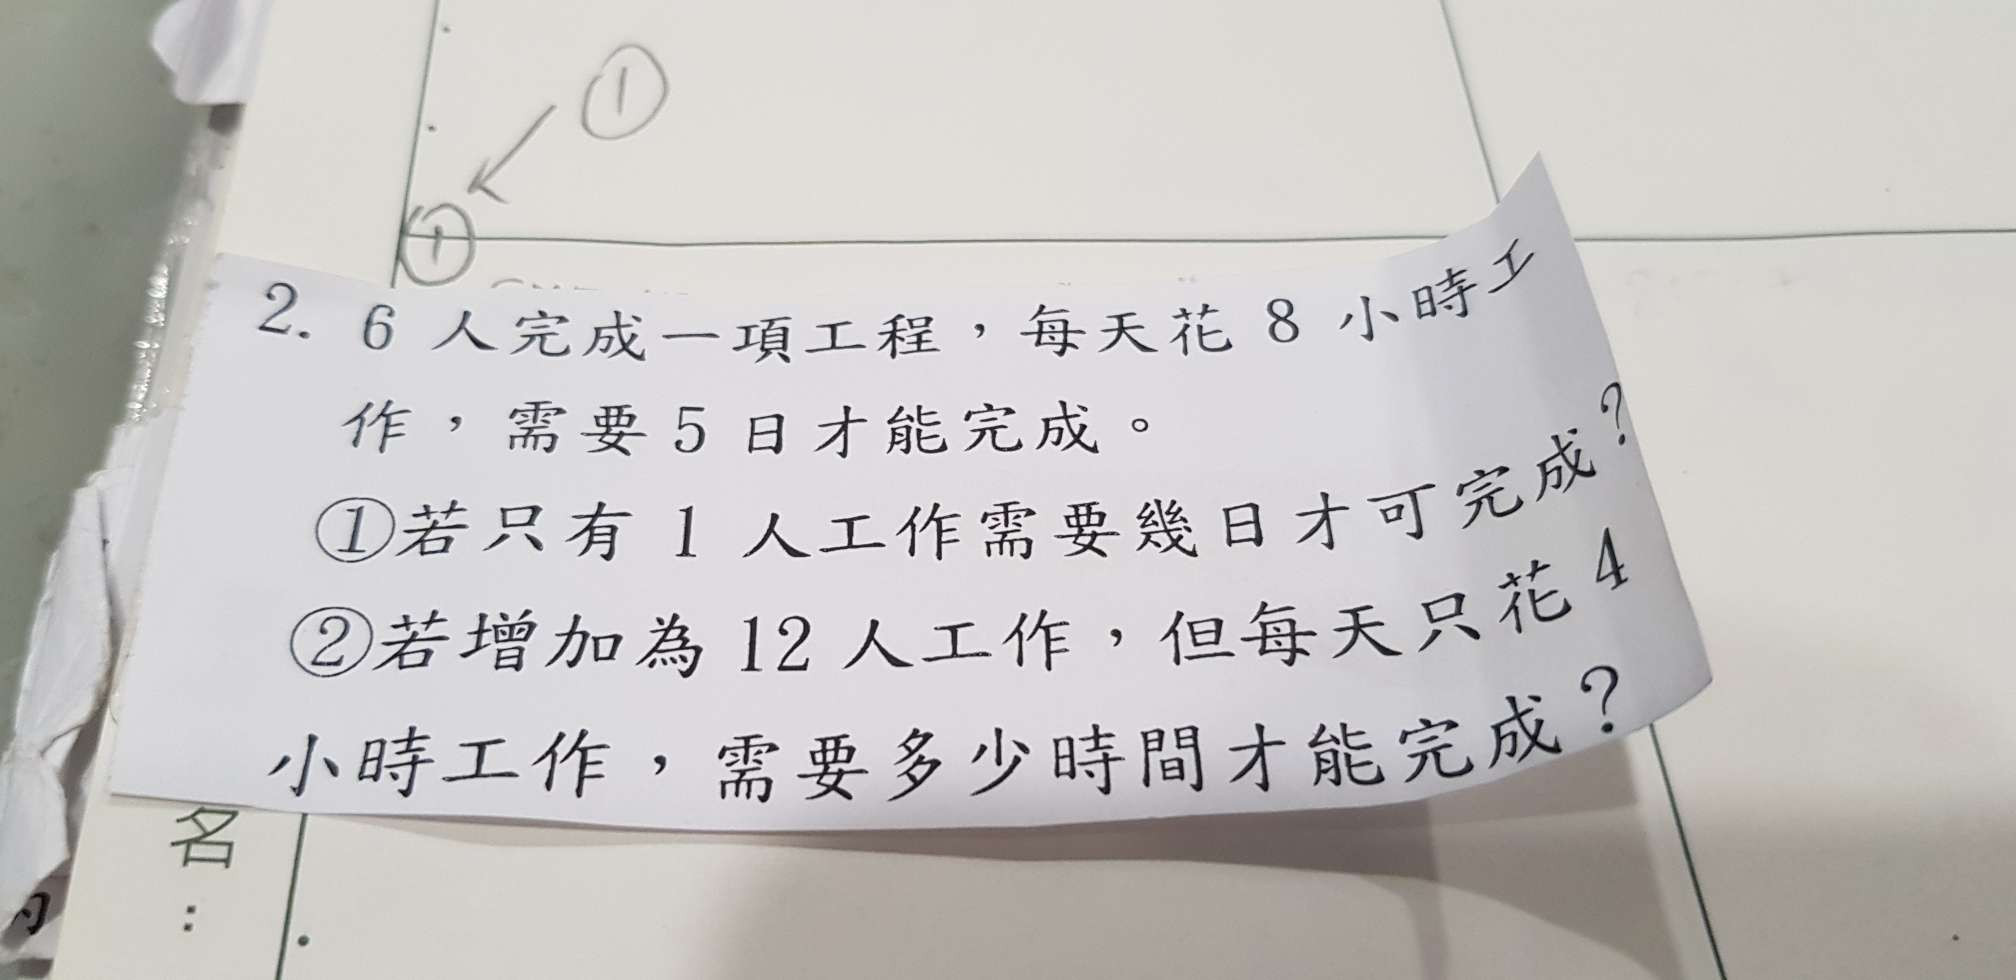 ①
①
2. 6 人完成一項工程，每天花 8 小時工
作，需要 5 日才能完成。
①若只有 1 人工作需要幾日才可完成？
②若增加為 12 人工作，但每天只花 4
小時工作，需要多少時間才能完成？
名：